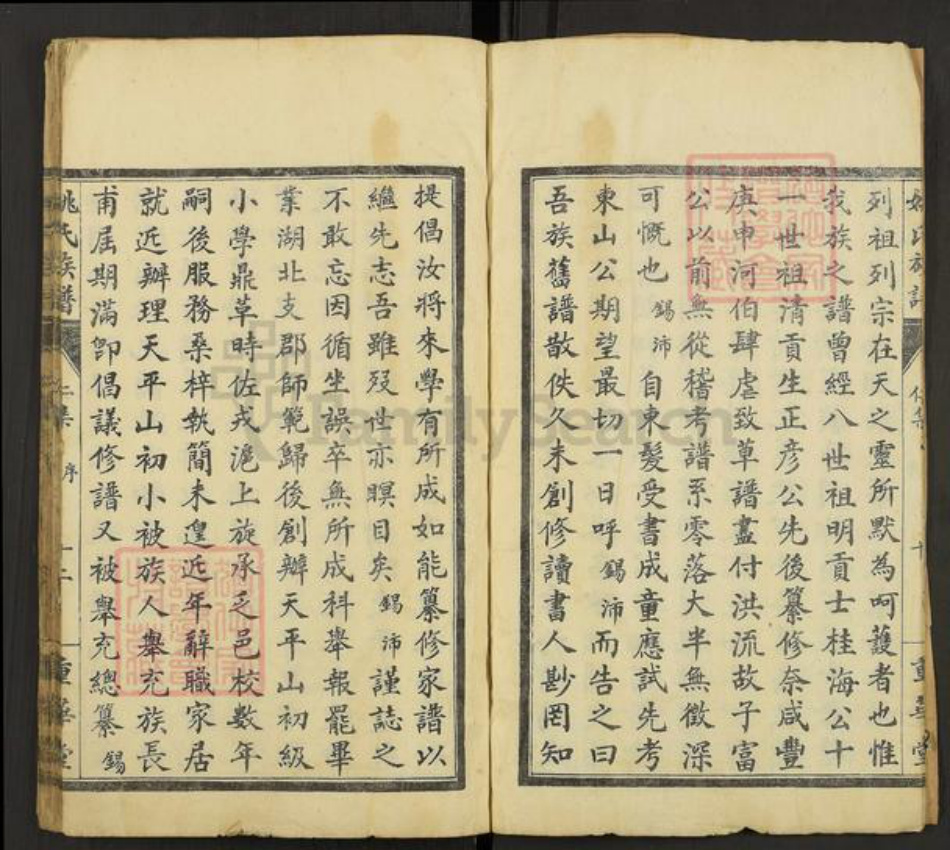 列祖列宗在天之靈所默為呵護者也惟
我族之譜曾經八世祖明貢士桂海公十
一世祖清貢生正彦公先後纂修奈咸豐
庚申河伯肆虐致草譜盡付洪流故子富
公以前無從稽考譜系零落大半無徵深
可慨也錫沛自束髮受書成童應試先考
東山公期望最切一日呼錫沛而告之曰
吾族舊譜散佚久未創修讀書人尠罔知
提倡汝將來學有所成如能纂修家譜以
繼先志吾雖歿世亦瞑目矣錫沛謹誌之
不敢忘因循坐誤卒無所成科舉報罷畢
業湖北支郡師範歸後創辦天平山初級
小學鼎革時佐戎滬上旋承乏邑校數年
嗣後服務桑梓執簡未遑近年辭職家居
就近辦理天平山初小被族人舉充族長
甫屆期滿卽倡議修譜又被舉充總纂錫
姚氏族譜
仁集
序
十二
重華堂
FamilySearch